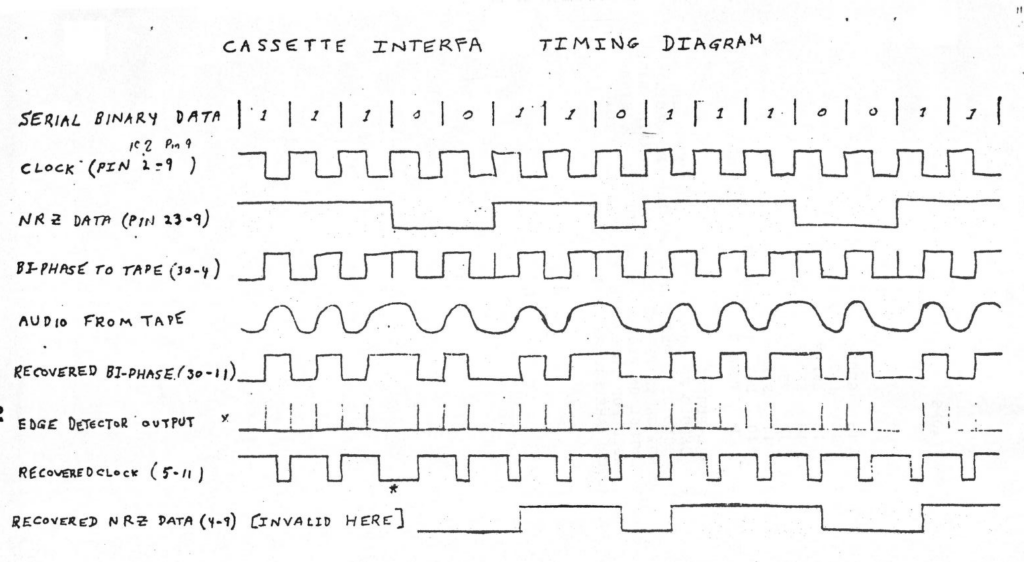 CASSETTE INTERFA TIMING DIAGRAM
SERIAL BINARY DATA | 1 | 1 | 1 | 0 | 0 | 1 | 1 | 0 | 1 | 1 | 1 | 0 | 0 | 1 | 1 |
IC 2 Pin 9
CLOCK (PIN 2-9)
NRZ DATA (PIN 23-9)
BI-PHASE TO TAPE (30-4)
AUDIO FROM TAPE
RECOVERED BI-PHASE (30-11)
EDGE DETECTOR OUTPUT *
RECOVERED CLOCK (5-11)
*
RECOVERED NRZ DATA (4-9) [INVALID HERE]